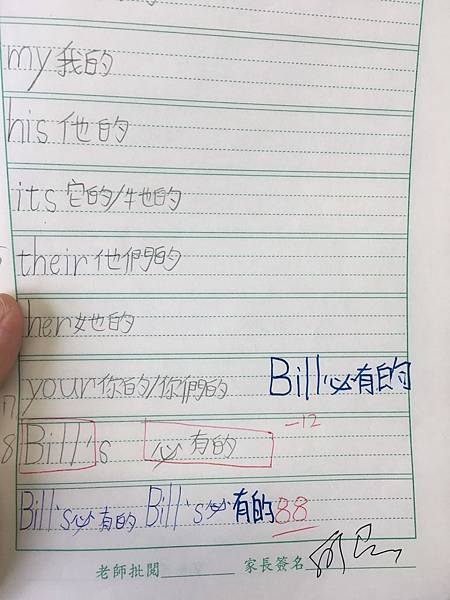 my 我的
his 他的
its 它的/牠的
their 他們的
her 她的
your 你的/你們的 Bill 必有的
8 Bill's 必有的 -12
Bill's 必有的 Bill's 必有的 88
老師批閱 家長簽名